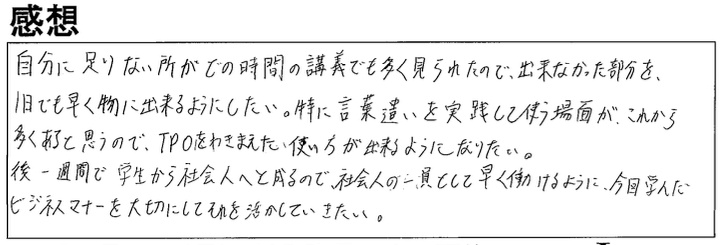 感想
自分に足りない所がどの時間の講義でも多く見られたので、出来なかった部分を、
1日でも早く物に出来るようにしたい。特に言葉遣いを実践して使う場面が、これから
多くあると思うので、TPOをわきまえた使い方が出来るようになりたい。
後一週間で学生から社会人へと成るので、社会人の一員として早く働けるように、今回学んだ
ビジネスマナーを大切にしてそれを活かしていきたい。